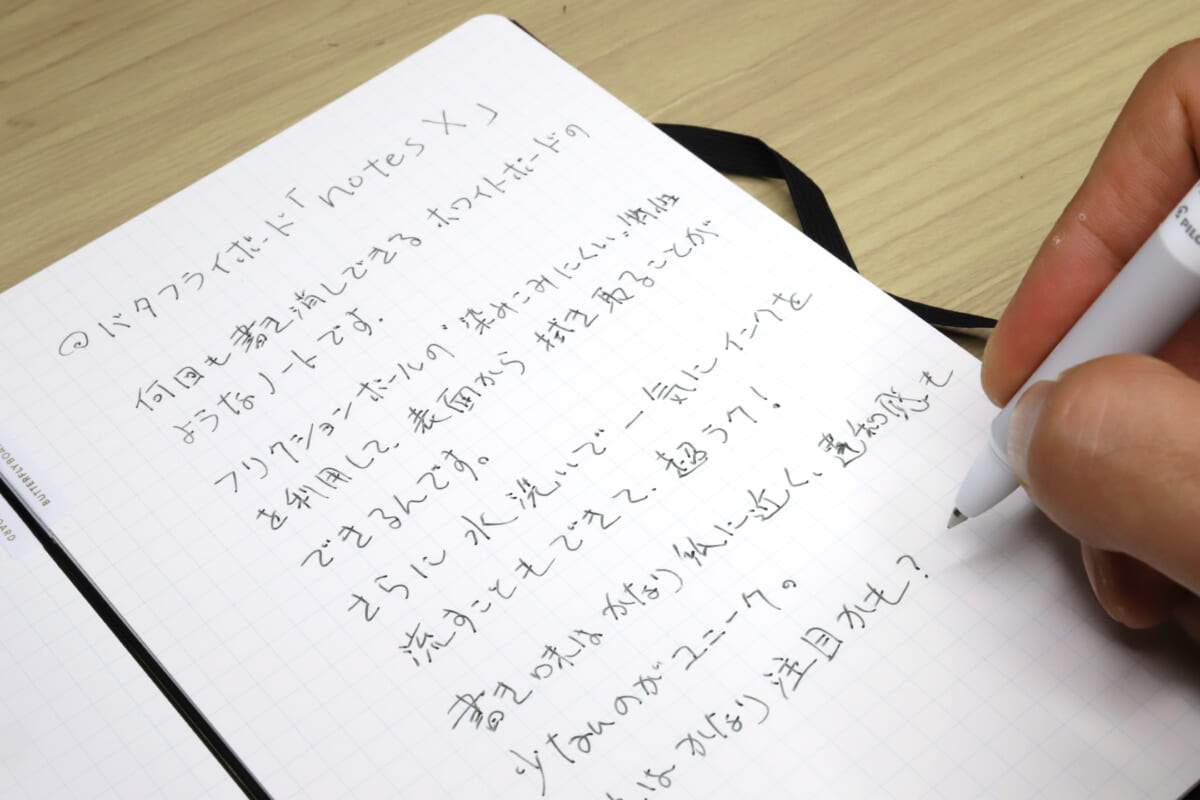 @バタフライボード「notes X」
何回も書き消しできるホワイトボードの
ようなノートです。
フリクションボールの"染みこみにくい"特性
を利用して、表面から拭き取ることが
できるんです。
さらに水洗いで一気にインクを
流すこともできて、超ラク!
書き味はかなり紙に近く、違和感も
少ないのがユニーク。
はかなり注目かも?
BUTTERFLYBOA
OARD
PILO